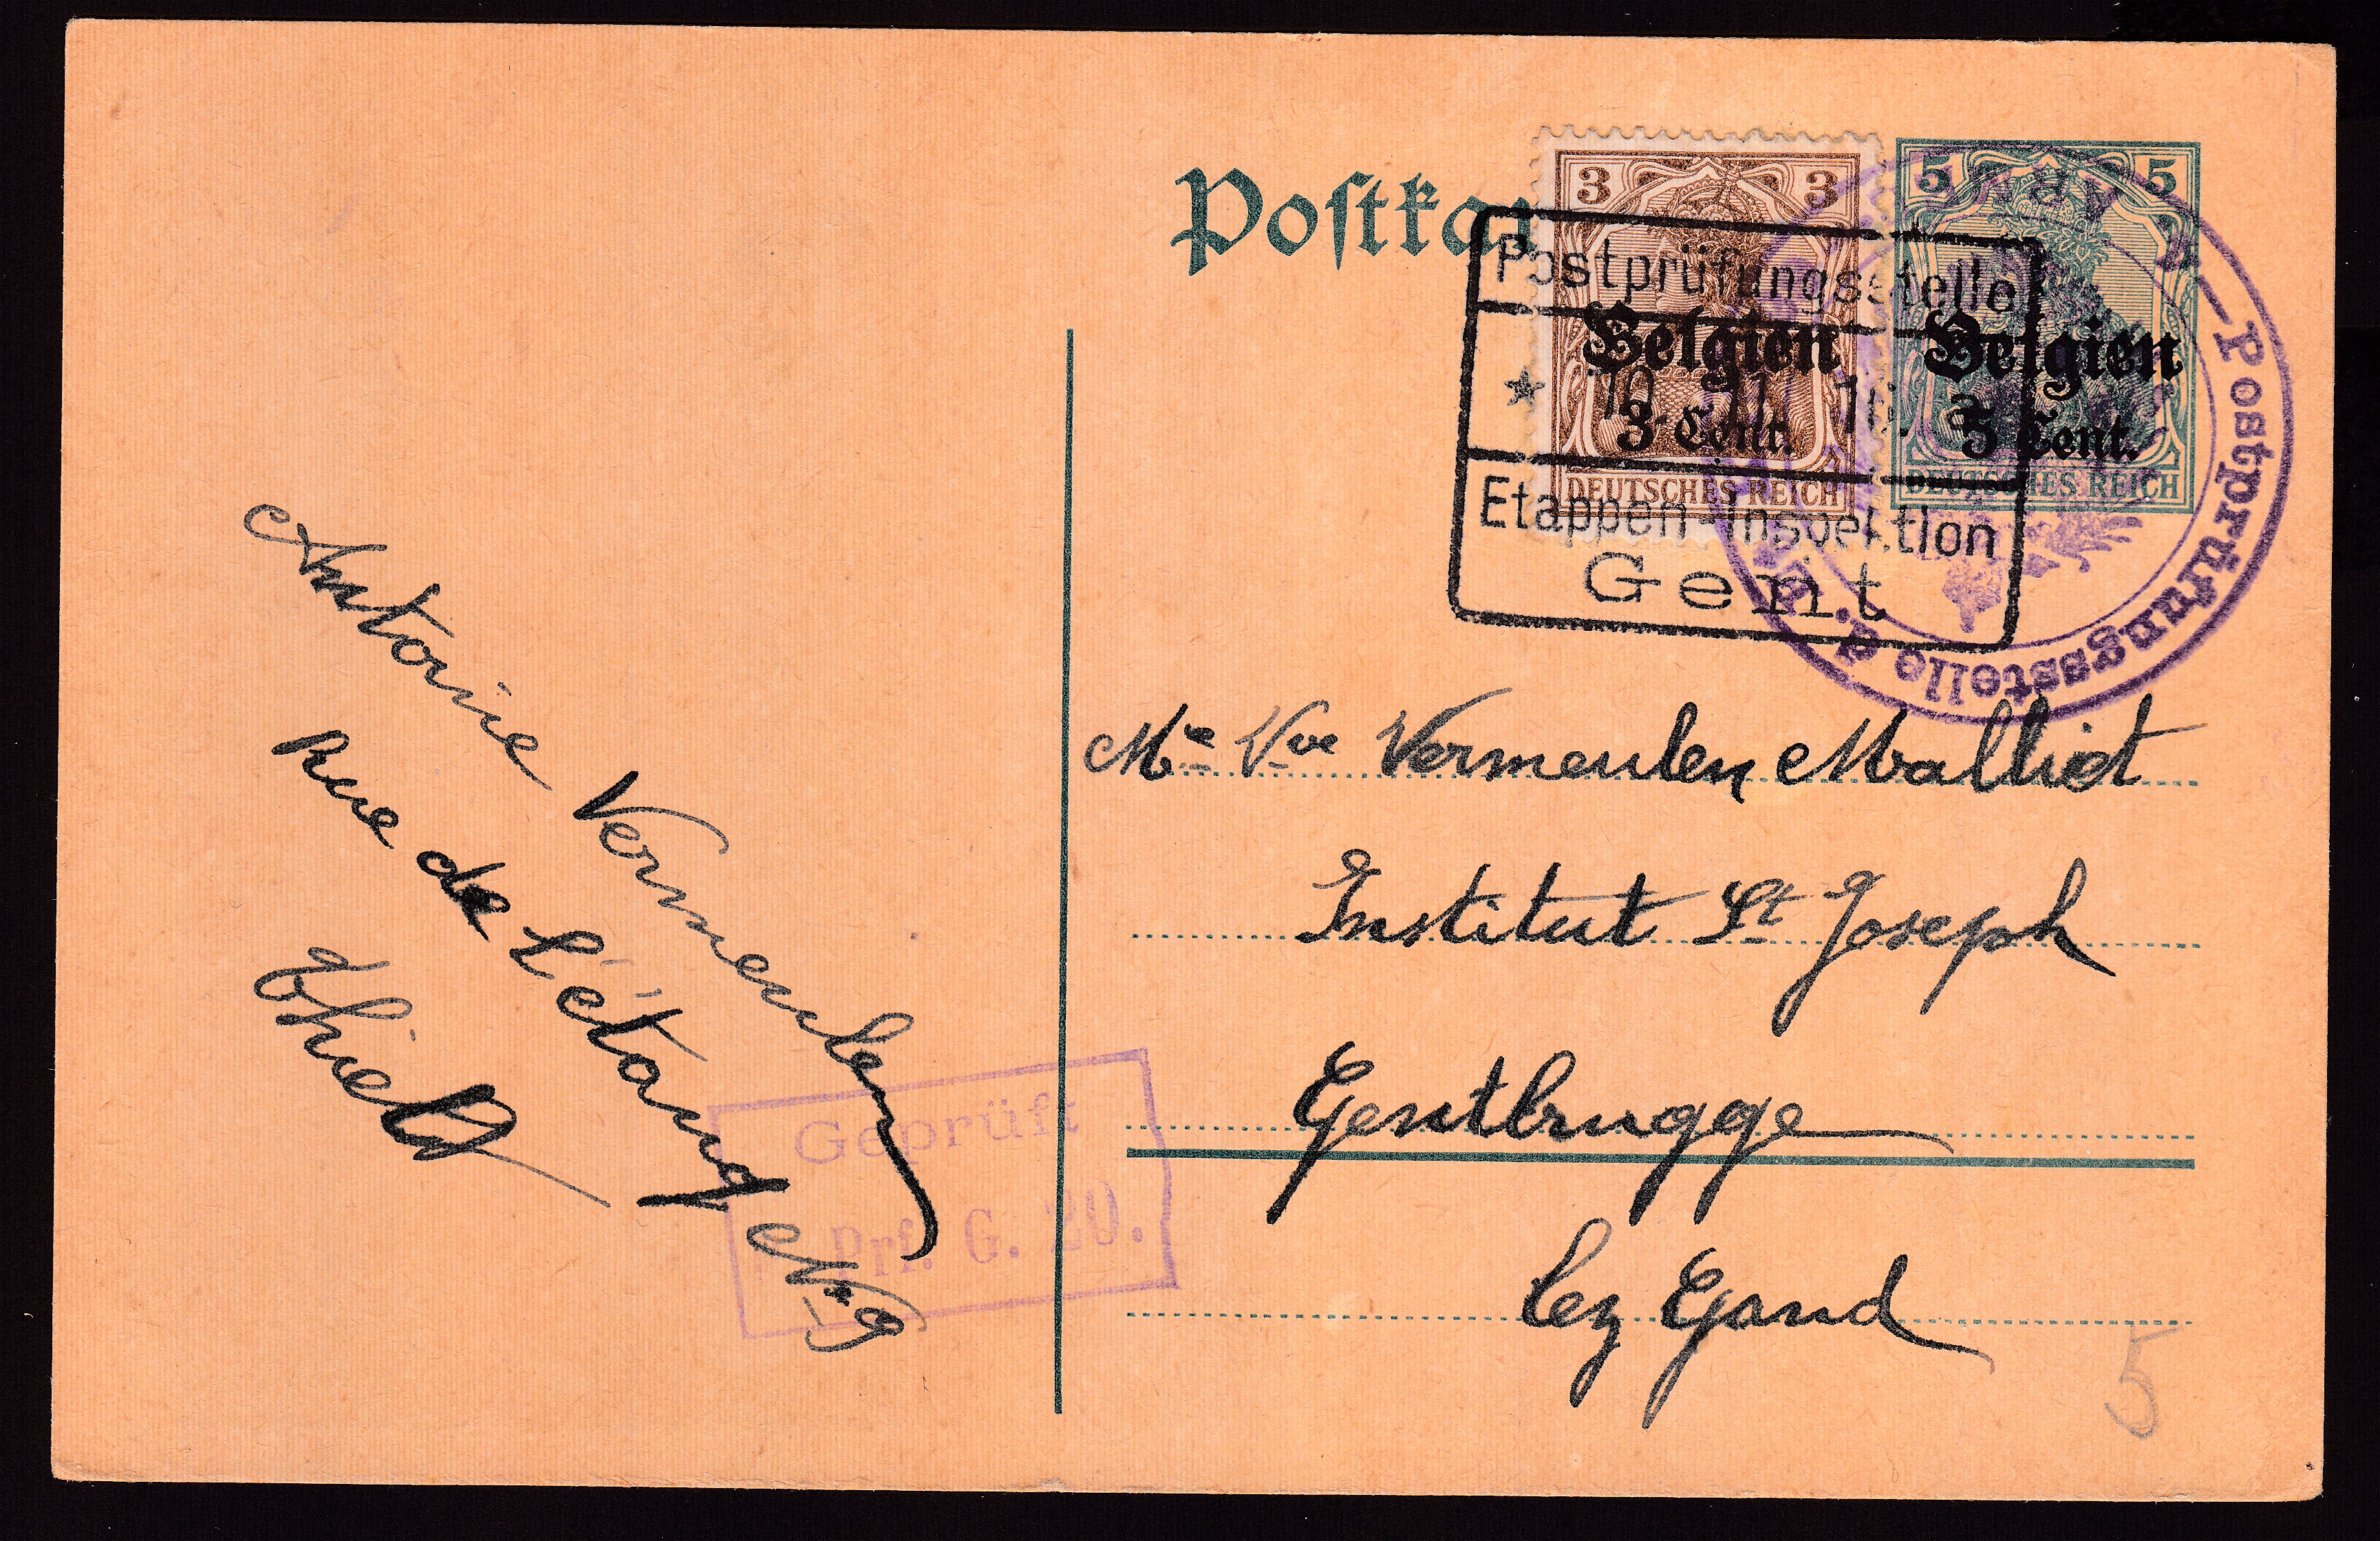 Postkar
3 3
Belgien
3 Cent.
DEUTSCHES REICH
5 5
Belgien
5 Cent.
DEUTSCHES REICH
Postprüfungsstelle
Etappen-Inspektion
Gent
Postprüfungsstelle d.
Mme Vve Vermeulen Malliet
Institut St Joseph
Gentbrugge
lez Gand
5
Antoine Vermeulen
Rue de l'étang No 9
Thielt
Geprüft
Prf. G. 20.